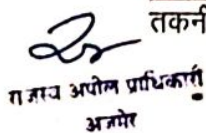 तकनी
राजस्व अपील प्राधिकारी
अजमेर